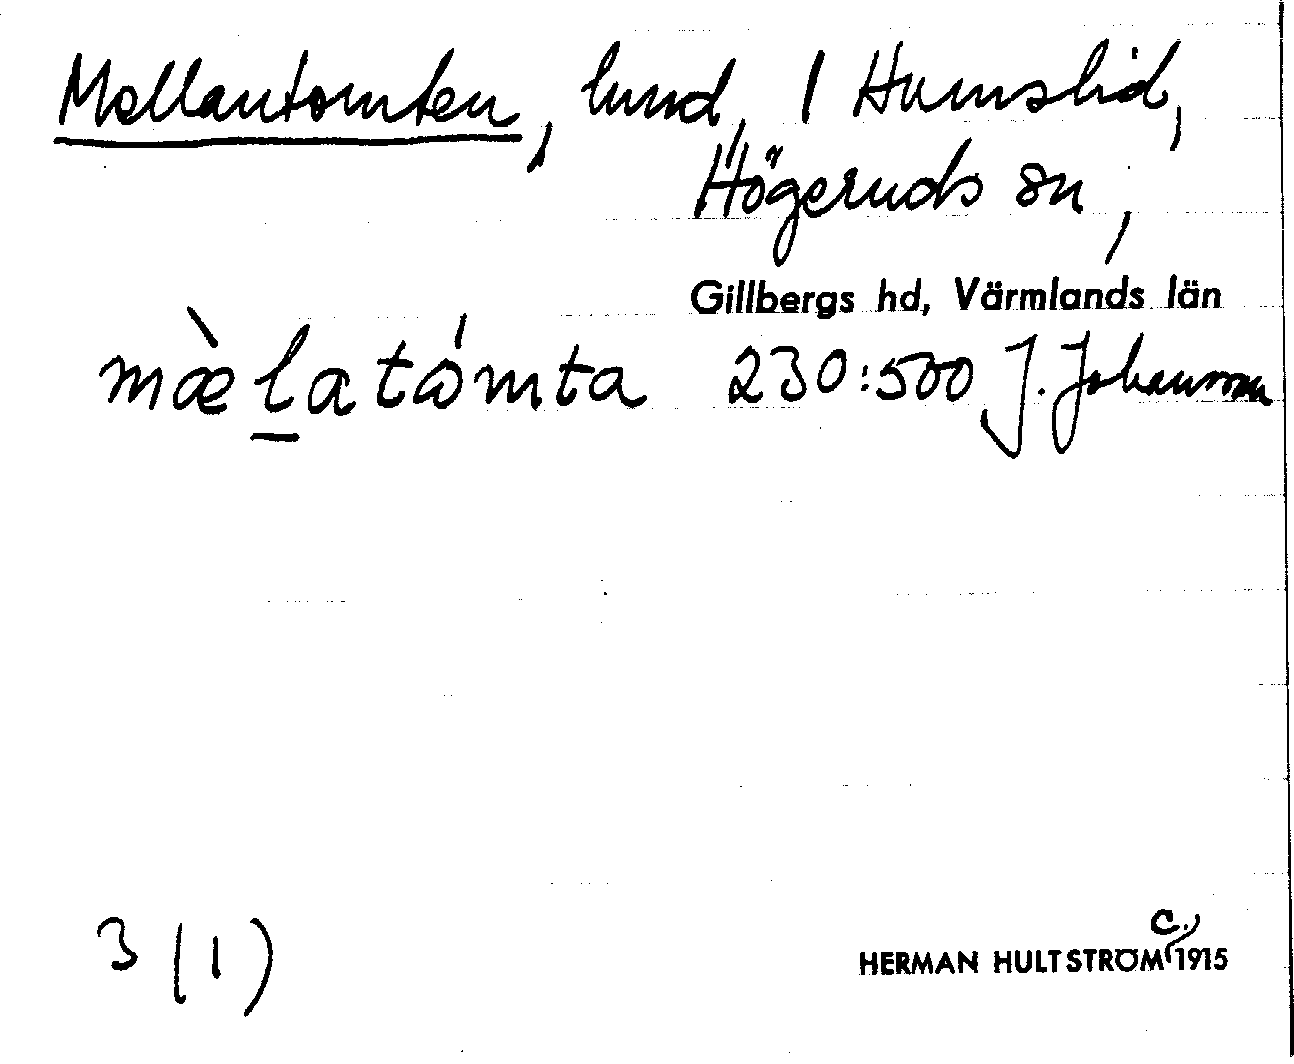 Mellantomten, lund, 1 Humslid,
Högeruds sn,
Gillbergs hd, Värmlands län
mæ̀l̠atómta 230:500 J. Johansson
3 (1)
HERMAN HULTSTRÖM c. 1915